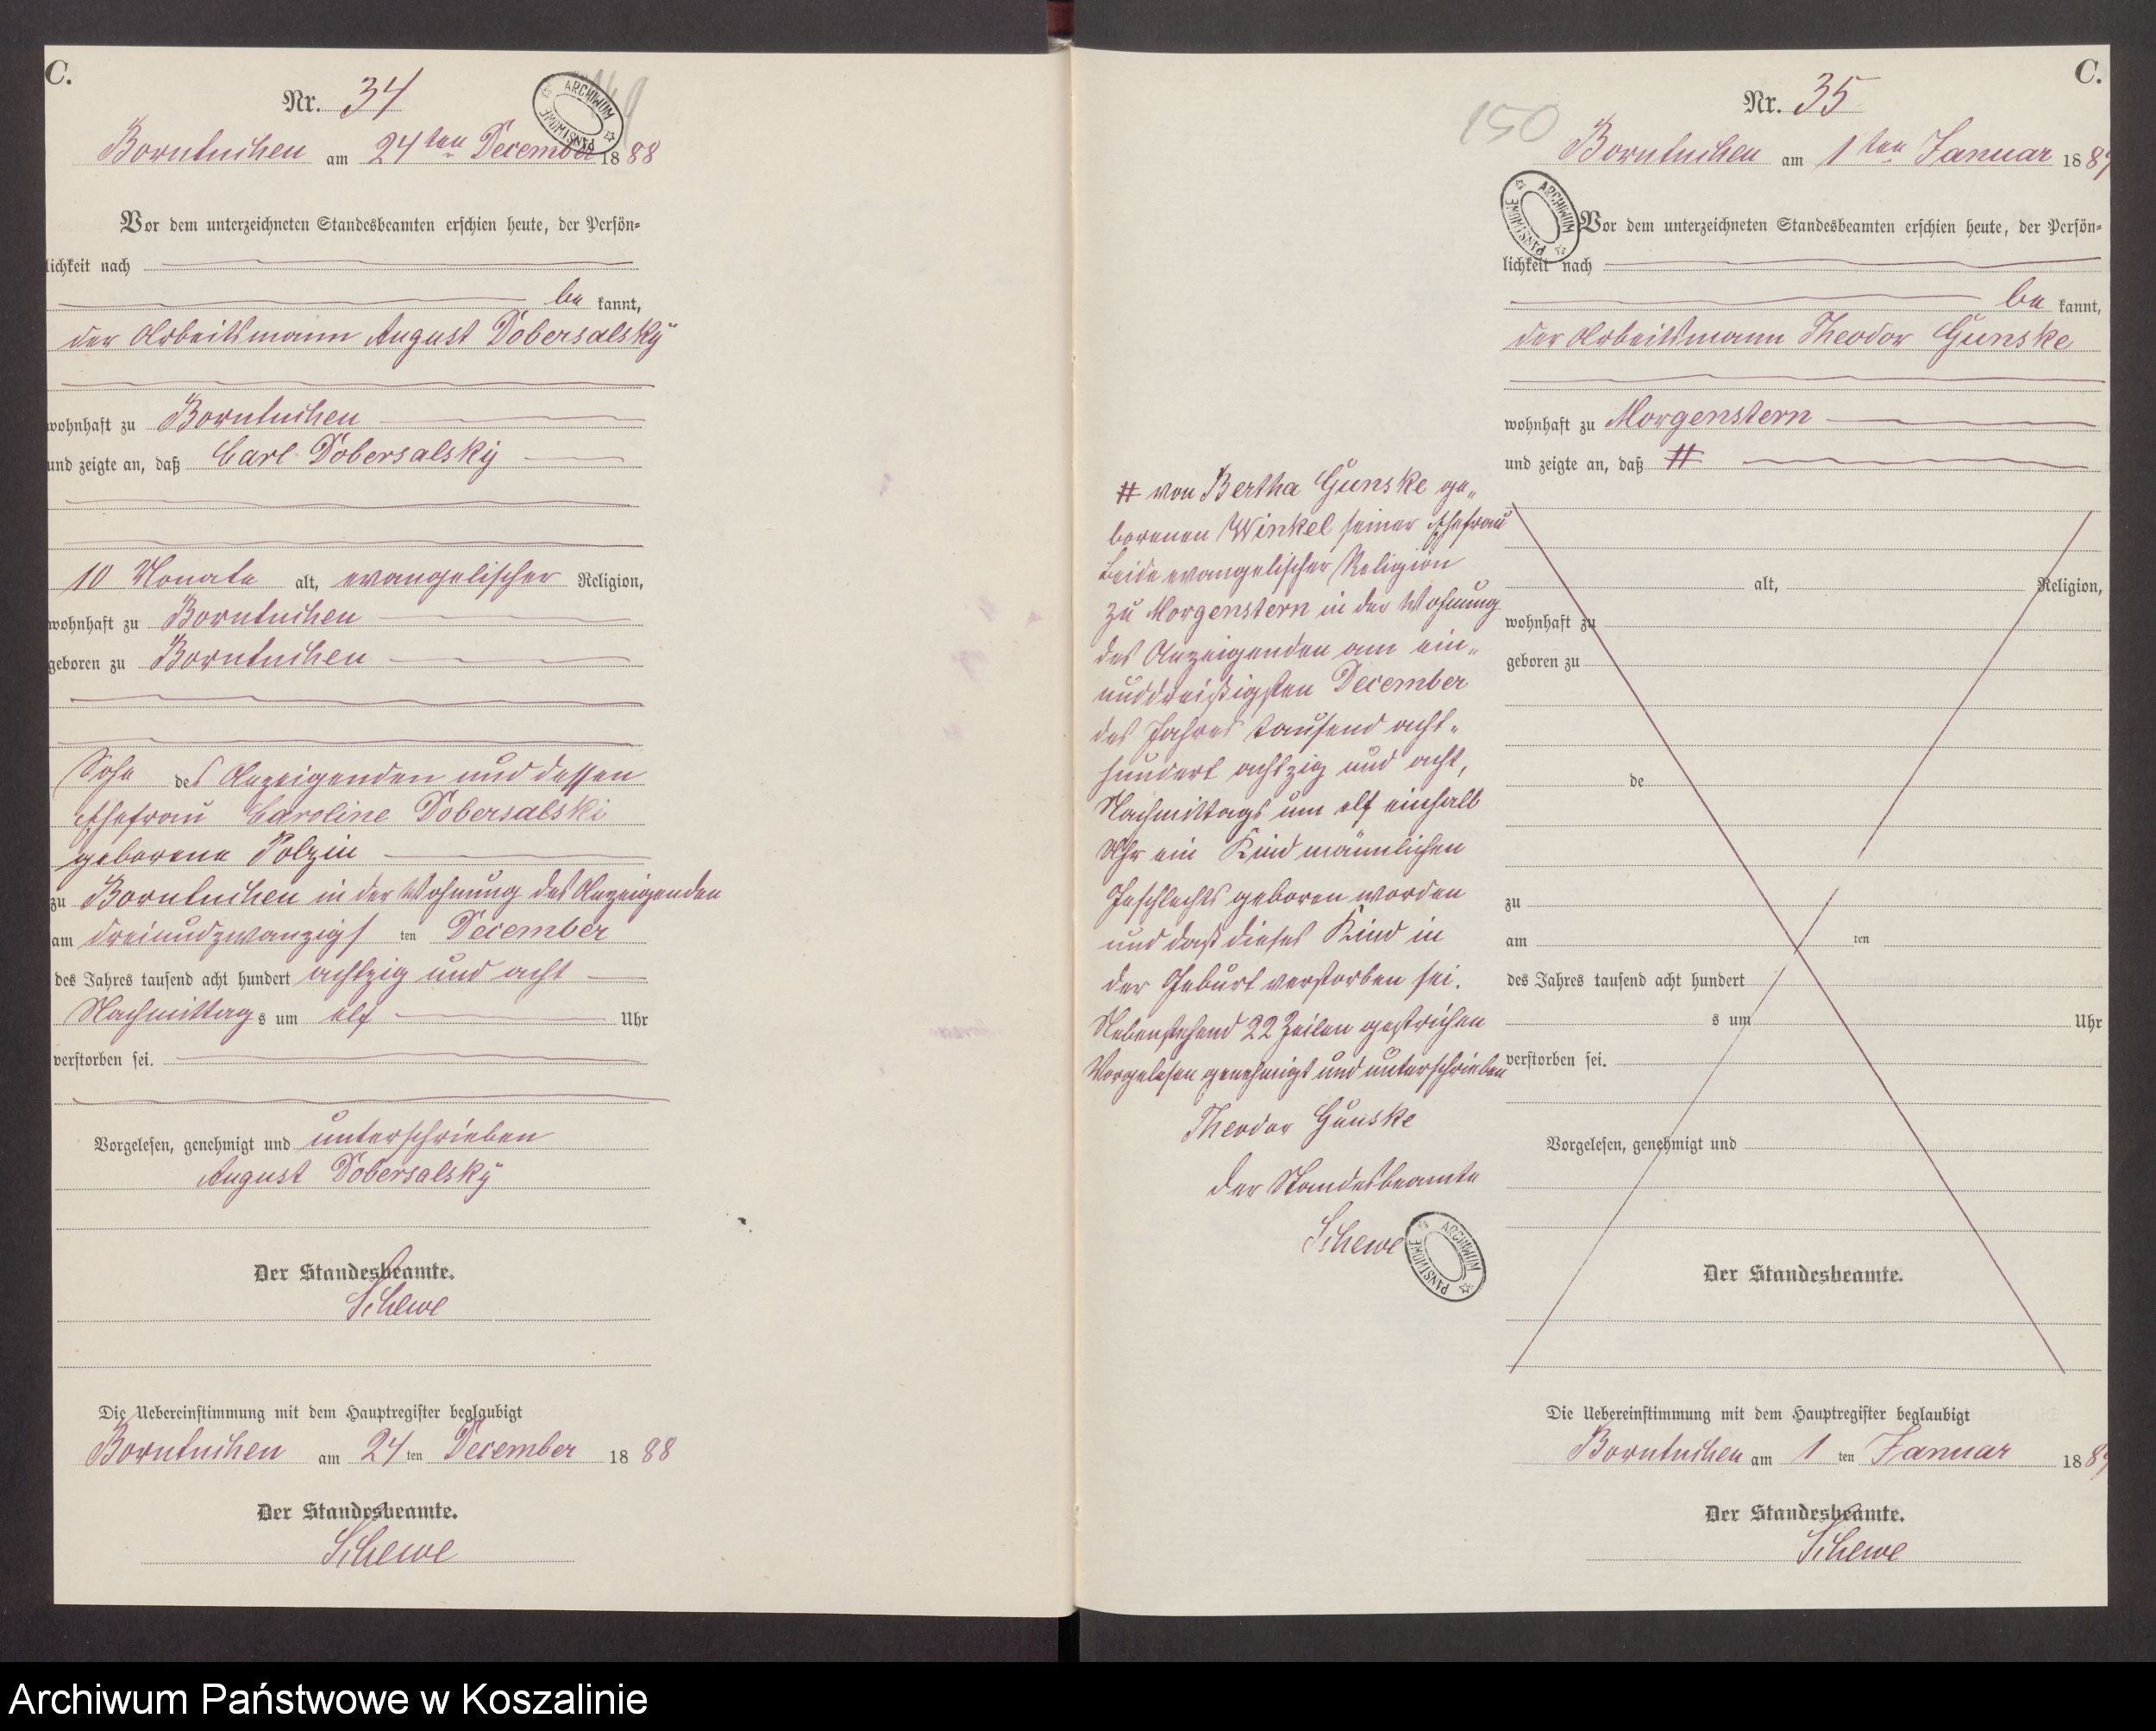 C.
Nr. 34
149
ARCHIWUM PAŃSTWOWE
Borntuchen am 24ten December 1888
Vor dem unterzeichneten Standesbeamten erschien heute, der Persön-
lichkeit nach
be kannt,
der Arbeitsmann August Dobersalsky
wohnhaft zu Borntuchen
und zeigte an, daß Carl Dobersalsky
10 Monate alt, evangelischer Religion,
wohnhaft zu Borntuchen
geboren zu Borntuchen
Sohn des Anzeigenden und dessen
Ehefrau Caroline Dobersalski
geborene Polzin
zu Borntuchen in der Wohnung des Anzeigenden
am dreiundzwanzigs ten December
des Jahres tausend acht hundert achtzig und acht
Nachmittag s um elf Uhr
verstorben sei.
Vorgelesen, genehmigt und unterschrieben
August Dobersalsky
Der Standesbeamte.
Schewe
Die Uebereinstimmung mit dem Hauptregister beglaubigt
Borntuchen am 24 ten December 1888
Der Standesbeamte.
Schewe
C.
Nr. 35
150
Borntuchen am 1ten Januar 1889
ARCHIWUM PAŃSTWOWE
Vor dem unterzeichneten Standesbeamten erschien heute, der Persön-
lichkeit nach
be kannt,
der Arbeitsmann Theodor Gunske
wohnhaft zu Morgenstern
und zeigte an, daß #
# von Bertha Gunske ge-
borenen Winkel seiner Ehefrau
beide evangelischer Religion
zu Morgenstern in der Wohnung
des Anzeigenden am ein-
unddreißigsten December
des Jahres tausend acht-
hundert achtzig und acht,
Nachmittags um elf einhalb
Uhr ein Kind männlichen
Geschlechts geboren worden
und daß dieses Kind in
der Geburt verstorben sei.
Nebenstehend 22 Zeilen gestrichen
Vorgelesen genehmigt und unterschrieben
Theodor Gunske
Der Standesbeamte
Schewe
ARCHIWUM PAŃSTWOWE
alt, Religion,
wohnhaft zu
geboren zu
de
zu
am ten
des Jahres tausend acht hundert
s um Uhr
verstorben sei.
Vorgelesen, genehmigt und
Der Standesbeamte.
Die Uebereinstimmung mit dem Hauptregister beglaubigt
Borntuchen am 1 ten Januar 1889
Der Standesbeamte.
Schewe
Archiwum Państwowe w Koszalinie